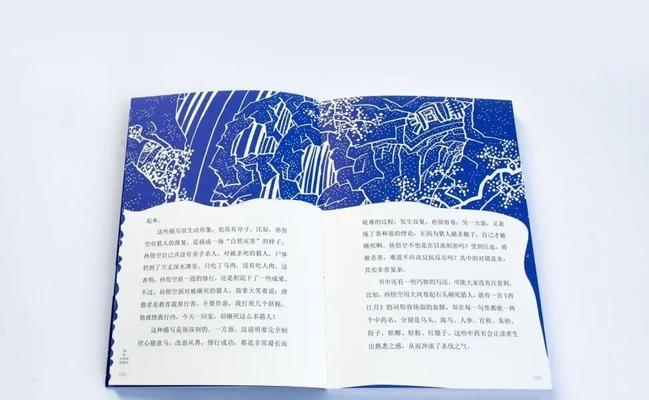 起来。
这些描写很生动形象，也很有分寸。比如，孙悟
空对猎人的报复，是搞成一场“自然灾害”的样子，
孙悟空自己并没有亲手杀人。对被杀死的猎人，尸体
扔到了万丈深水潭里，只吃了马肉，没有吃人肉。这
表明，孙悟空前一段的修行，还是积淀下了一些成果。
不过，孙悟空面对被砸死的猎人，鼓掌大笑着说：唐
僧老是教育我要行善，不要作恶，我打死几个妖精，
他就怪我行凶，今天一回家，却砸死这么多猎人！
这种描写是很深刻的。一方面，说明要完全制
伏心猿意马，改恶从善，修行成功，都是非常漫长而
艰难的过程，发生反复，也很容易；另一方面，又表
现了善和恶的悖论，正因为猎人捕杀猴子，自己才被
砸死啊。孙悟空不也是在以恶制恶吗？受到压迫，将
被杀害，难道不应该反抗反击吗？其中的对错是非，
其实非常复杂。
书中还有一些巧妙的写法，可能大家没有注意到。
比如，孙悟空用大风卷起石头砸死猎人，就有一首《西
江月》的词形容场面的血腥，却在每一句里都嵌一两
个中药名，分别是乌头、海马、人参、官桂、朱砂、
附子、槟榔、轻粉、红娘子。这些中药名会让读者生
出熟悉之感，从而冲淡了杀伐之气。